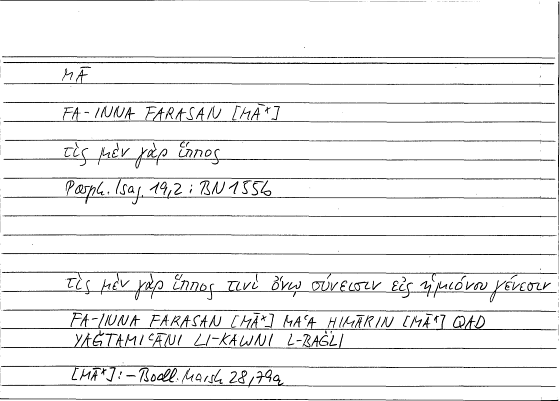 MĀ
FA-INNA FARASAN [MĀ*]
τὶς μὲν γὰρ ἵππος
Porph. Isag. 19,2 : BN 155b
τὶς μὲν γὰρ ἵππος τινὶ ὄνῳ σύνεισιν εἰς ἡμιόνου γένεσιν
FA-INNA FARASAN [MĀ*] MAʿA ḤIMĀRIN [MĀ*] QAD
YAǦTAMIʿĀNI LI-KAWNI L-BAĠLI
[MĀ*] : - Bodl. Marsh 28, 79a